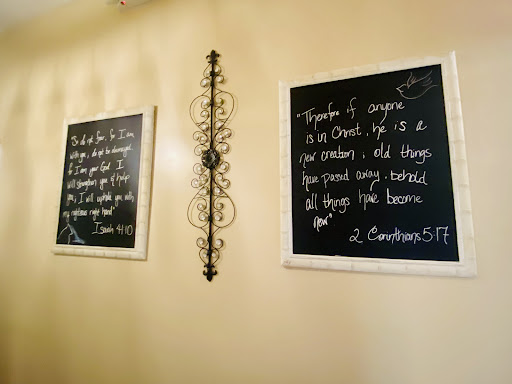 "So do not fear, for I am
with you, do not be dismayed,
for I am your God. I
will strengthen you & help
you; I will uphold you with
my righteous right hand"
Isaiah 41:10
"Therefore if anyone
is in Christ, he is a
new creation; old things
have passed away; behold
all things have become
new"
2 Corinthians 5:17